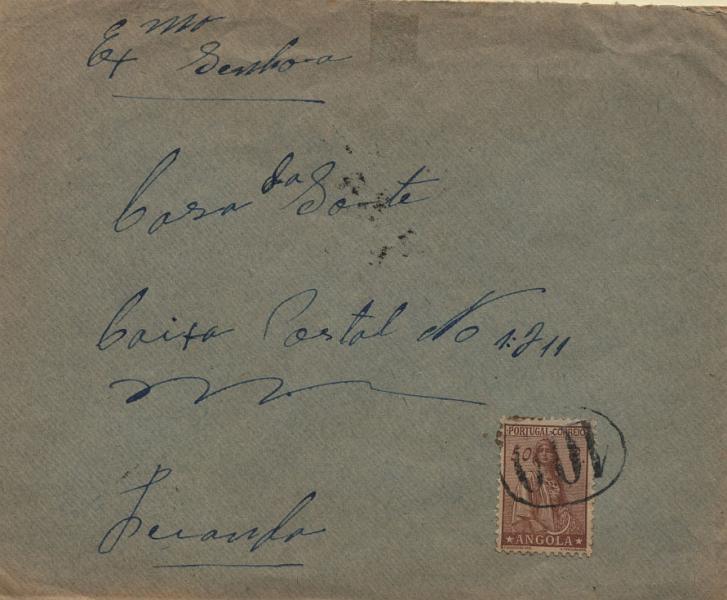 Exmo
Senhora
Casa da Sorte
Caixa Postal No 1:211
Luanda
PORTUGAL-CORREIO
50
ANGOLA